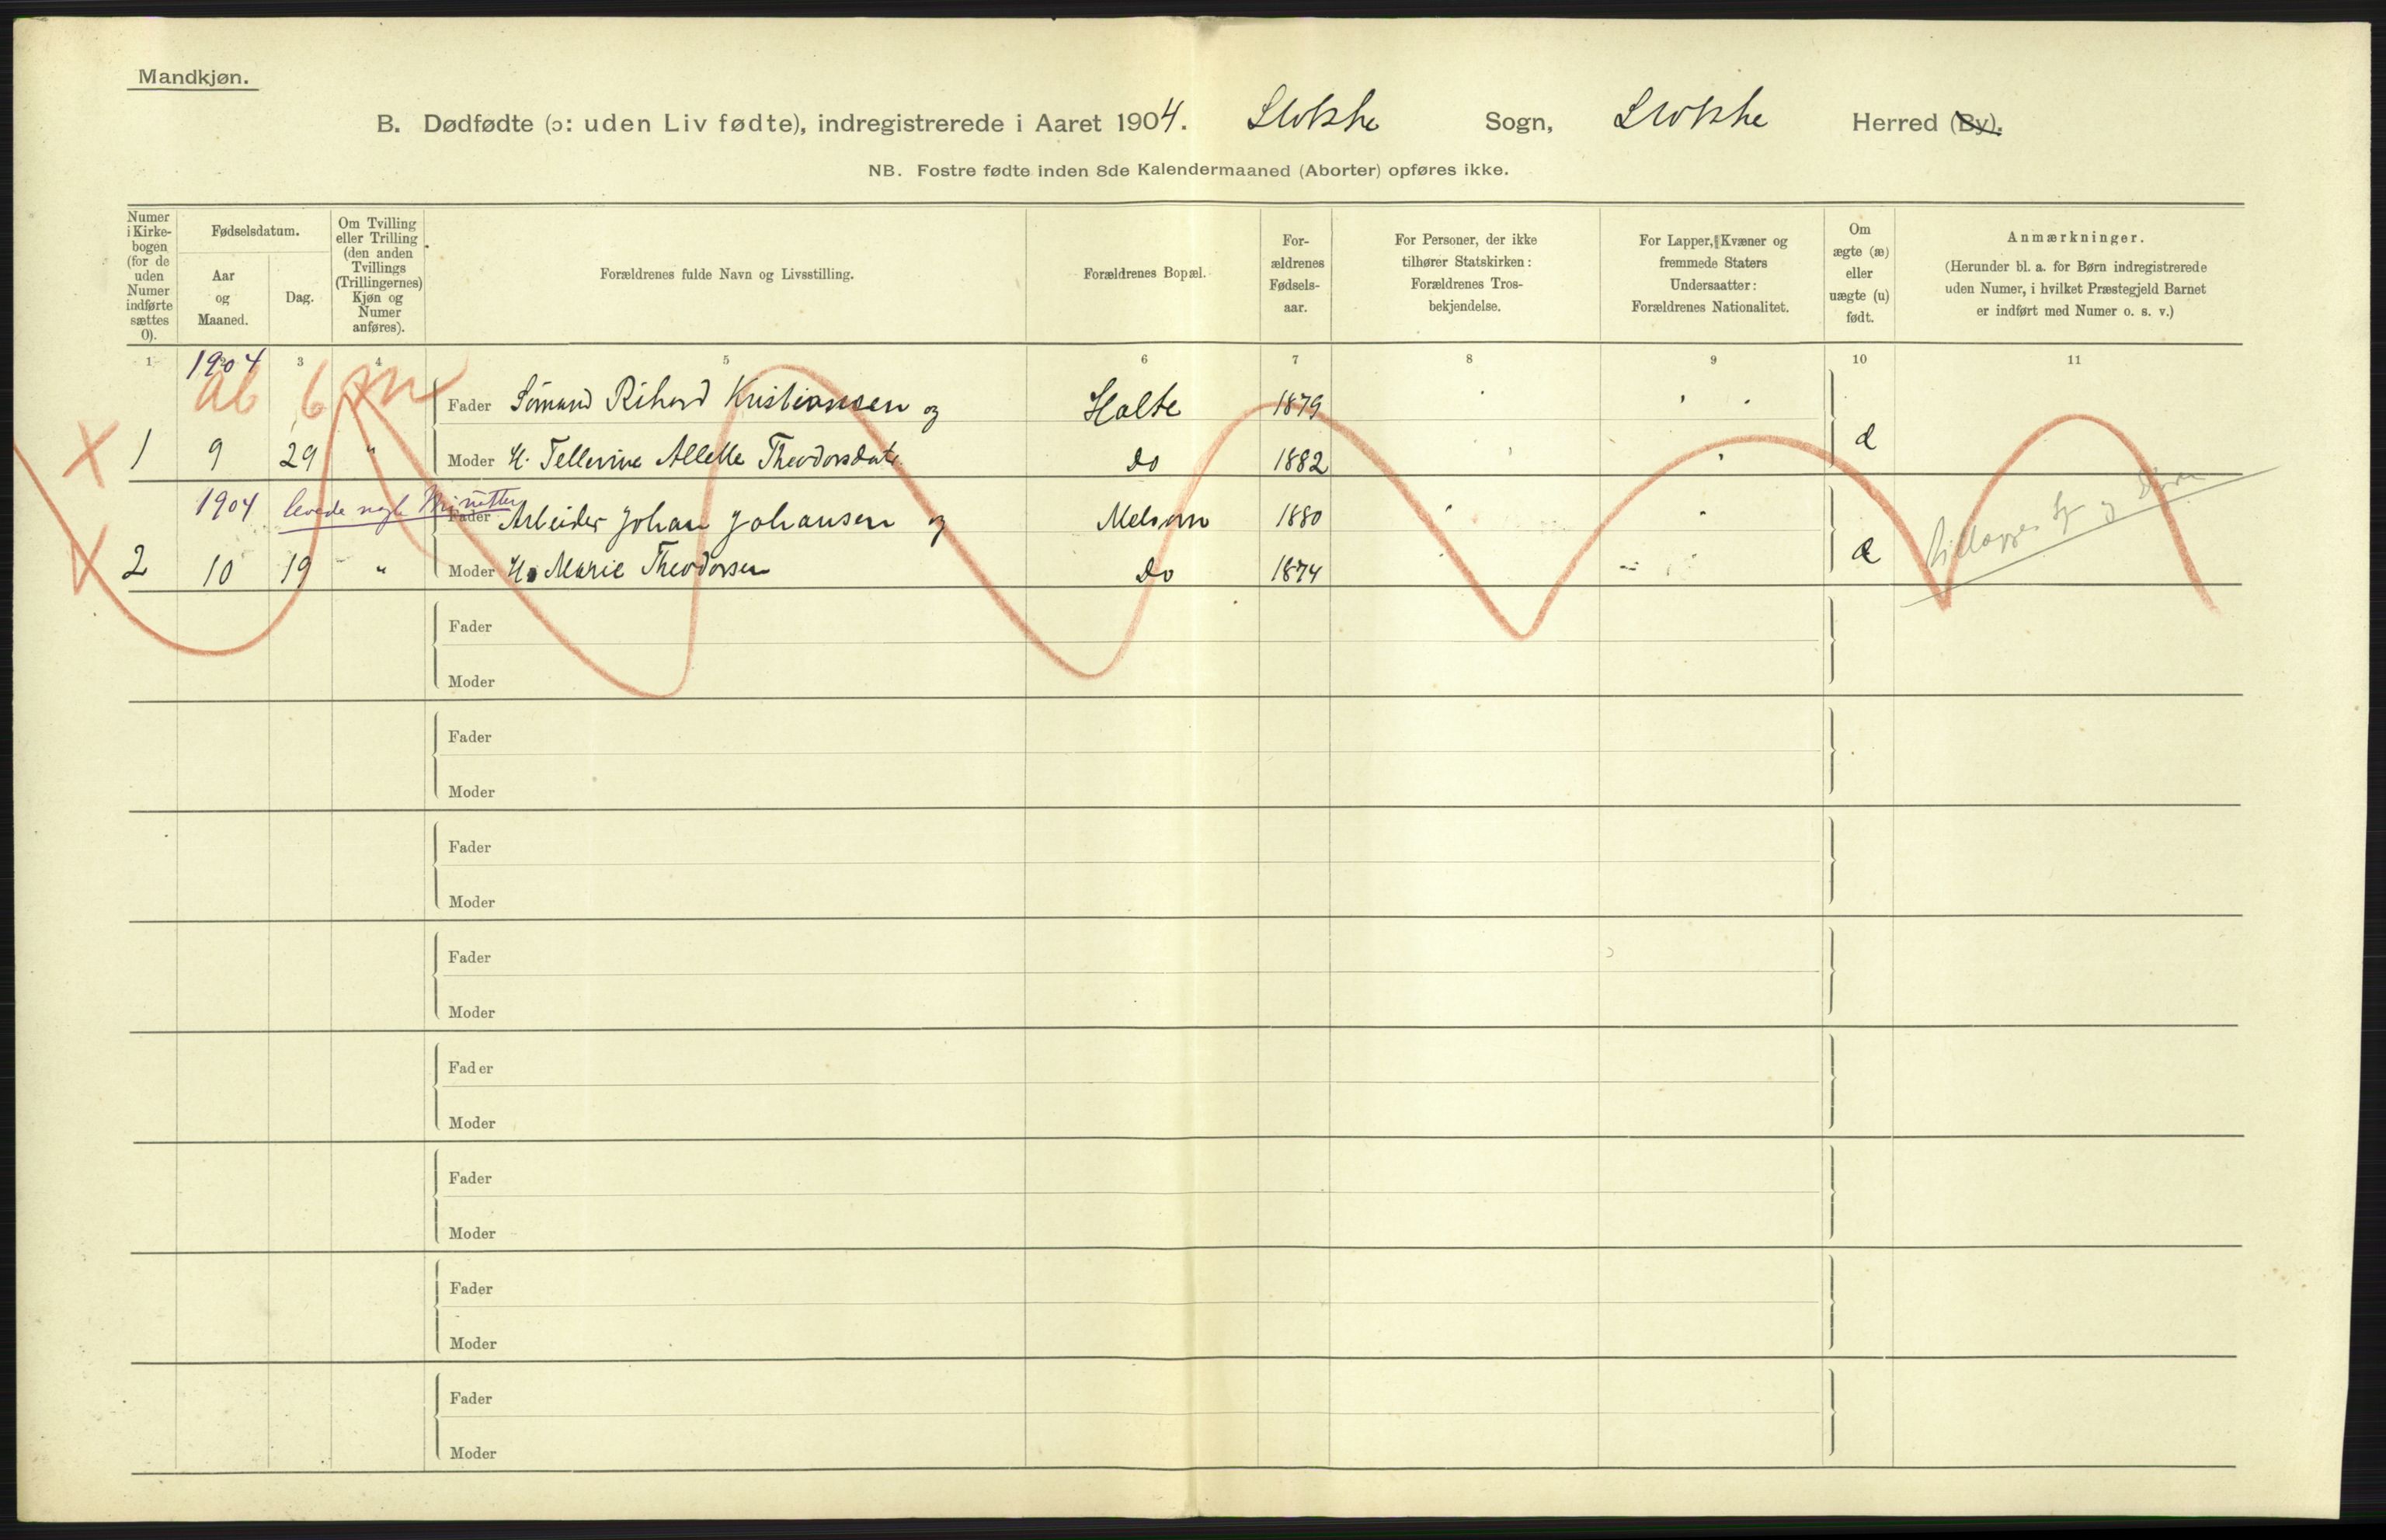 Mandkjøn.
B. Dødfødte (ɔ: uden Liv fødte), indregistrerede i Aaret 1904. Stokke Sogn, Stokke Herred (By).
NB. Fostre fødte inden 8de Kalendermaaned (Aborter) opføres ikke.
Numer i Kirkebogen (for de uden Numer indførte sættes 0).
Fødselsdatum.
Aar og Maaned.
Dag.
Om Tvilling eller Trilling (den anden Tvillings (Trillingernes) Kjøn og Numer anføres).
Forældrenes fulde Navn og Livsstilling.
Forældrenes Bopæl.
For-ældrenes Fødsels-aar.
For Personer, der ikke tilhører Statskirken: Forældrenes Tros-bekjendelse.
For Lapper, Kvæner og fremmede Staters Undersaatter: Forældrenes Nationalitet.
Om ægte (æ) eller uægte (u) født.
Anmærkninger.
(Herunder bl. a. for Børn indregistrerede uden Numer, i hvilket Præstegjeld Barnet er indført med Numer o. s. v.)
1 3 4 5 6 7 8 9 10 11
1904
ab 6 m
Fader Sømand Rikard Kristiansen og Holte 1879
1 9 29 " Moder H. Theodorsdatr. do 1882 æ
1904 levede nogle Minutter
Fader Arbeider Johan Johansen og Melsom 1880
2 10 19 " Moder H. Marie Theodorsen do 1874 æ
Fader
Moder
Fader
Moder
Fader
Moder
Fader
Moder
Fader
Moder
Fader
Moder
Fader
Moder
Fader
Moder